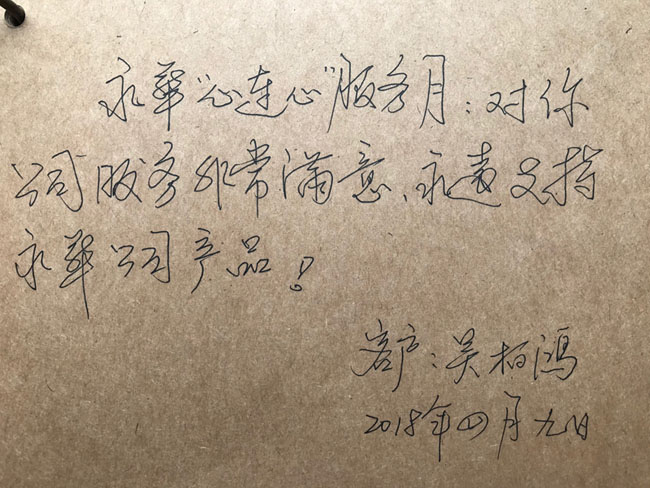 永华“心连心”服务月：对你
公司服务非常满意、永远支持
永华公司产品！
客户：吴柏鸿
2018年四月九日